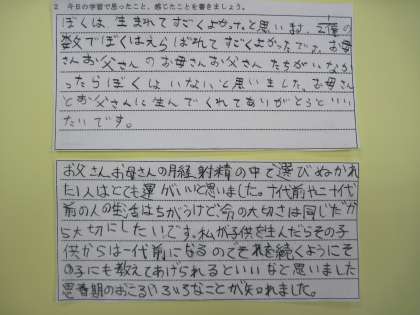 2 今日の学習で思ったこと、感じたことを書きましょう。
ぼくは 生まれてすごくよかったと思います。2億の
数でぼくはえらばれてすごくよかったです。お母
さんお父さんのお母さんお父さんたちがいなか
ったらぼくはいないと思いました。お母さん
とお父さんに生んでくれてありがとうといい
たいです。
お父さん、お母さんの月経、射精の中で選びぬかれ
た1人はとても運がいいと思いました。十代前や二十代
前の人の生活はちがうけど、命の大切さは同じだか
ら大切にしたいです。私が子供を生んだらその子
供からは一代前になるのでそれを続くようにそ
の子にも教えてあげられるといいなと思いました
思春期のおこるいろいろなことが知れました。